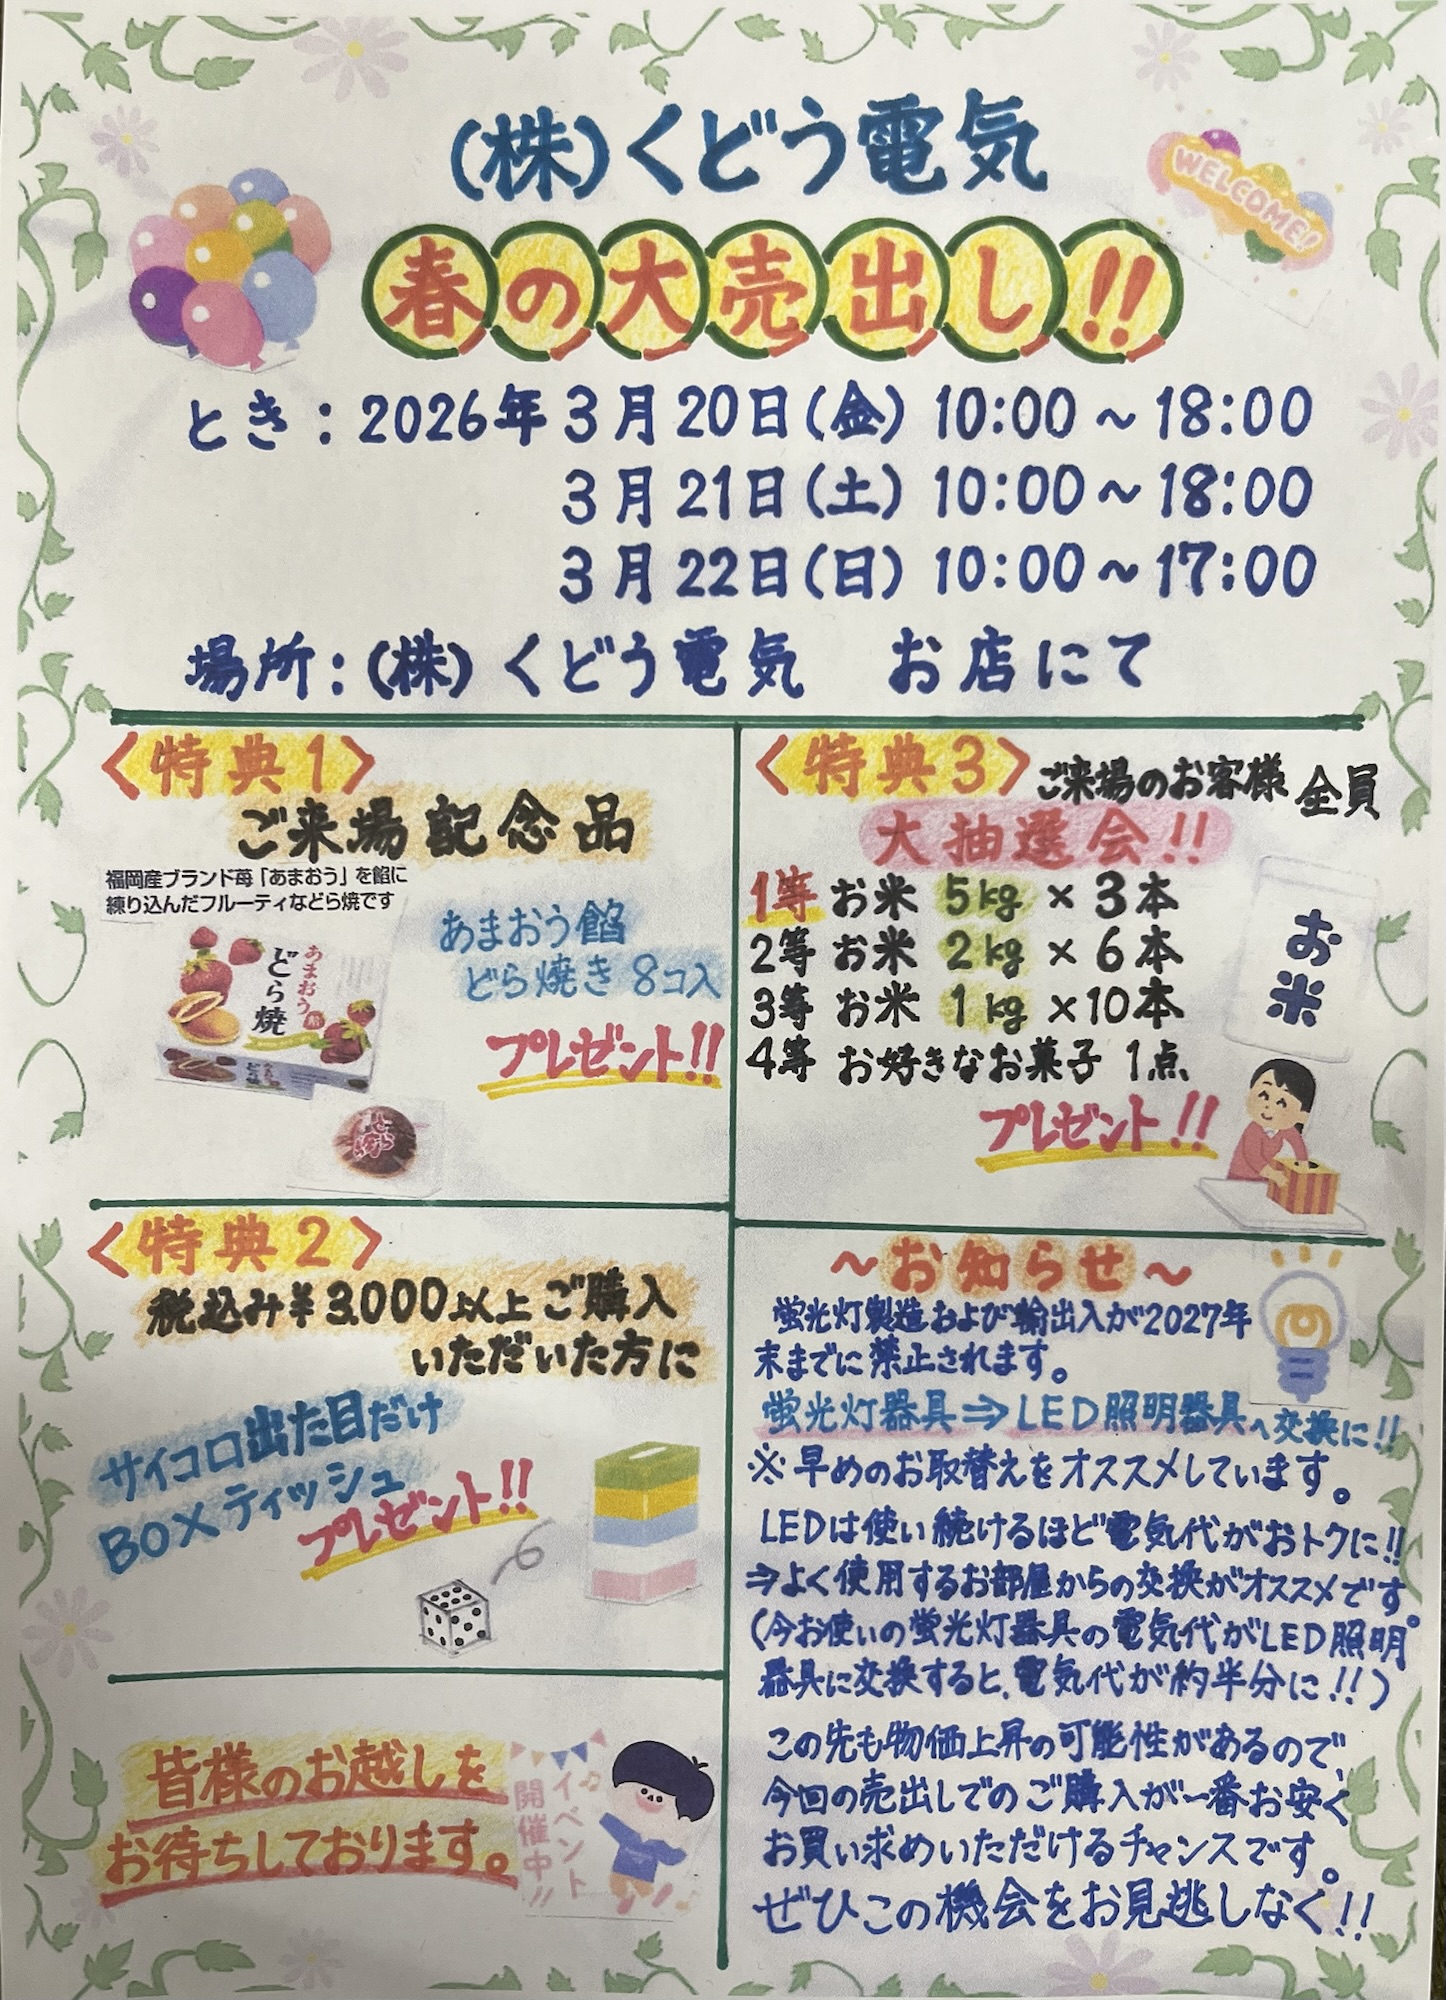 (株)くどう電気
WELCOME!
春の大売出し!!
とき:2026年3月20日(金) 10:00~18:00
3月21日(土) 10:00~18:00
3月22日(日) 10:00~17:00
場所:(株)くどう電気 お店にて
〈特典1〉
ご来場記念品
福岡産ブランド苺「あまおう」を餡に
練り込んだフルーティなどら焼です
あまおう餡
どら焼き 8コ入
プレゼント!!
あまおう餡
どら焼
〈特典2〉
税込み¥3.000以上ご購入
いただいた方に
サイコロ出た目だけ
BOXティッシュ
プレゼント!!
6
皆様のお越しを
お待ちしております。
イベント
開催中!!
〈特典3〉ご来場のお客様 全員
大抽選会!!
1等 お米 5kg × 3本
2等 お米 2kg × 6本
3等 お米 1kg ×10本
4等 お好きなお菓子 1点
プレゼント!!
お米
~お知らせ~
蛍光灯製造および輸出入が2027年
末までに禁止されます。
蛍光灯器具⇒LED照明器具へ交換に!!
※早めのお取替えをオススメしています。
LEDは使い続けるほど電気代がおトクに!!
⇒よく使用するお部屋からの交換がオススメです。
(今お使いの蛍光灯器具の電気代がLED照明
器具に交換すると、電気代が約半分に!!)
この先も物価上昇の可能性があるので、
今回の売出しでのご購入が一番お安く
お買い求めいただけるチャンスです。
ぜひこの機会をお見逃しなく!!